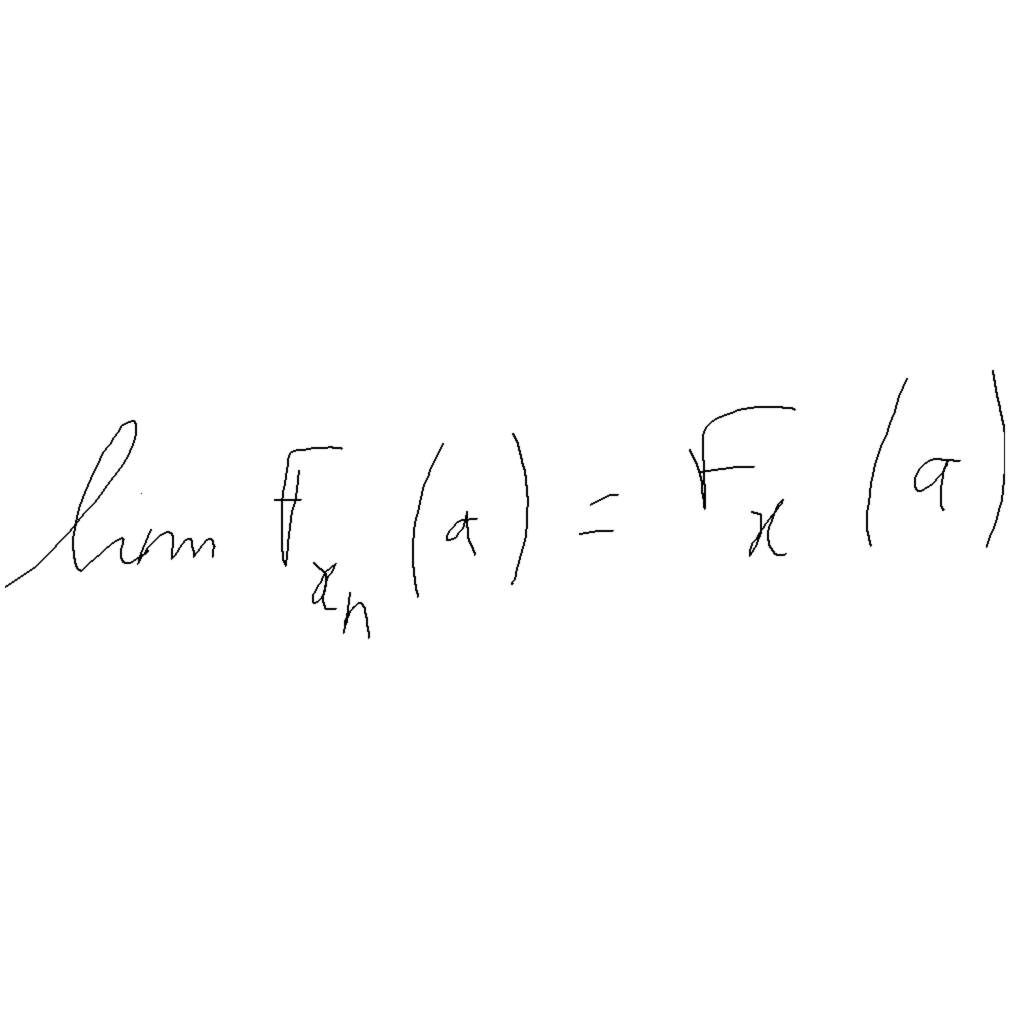 lim F_{x_n} (a) = F_x (a)